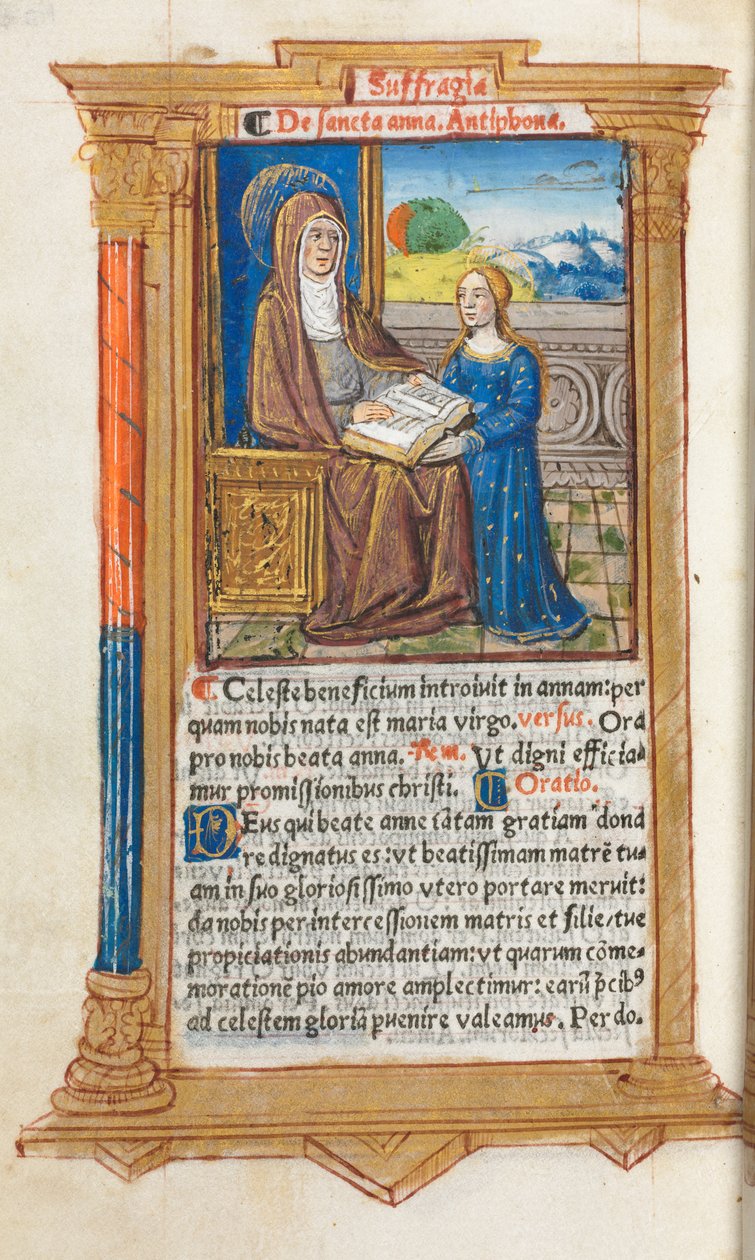 Suffragia
¶ De sancta anna. Antiphona.
¶ Celeste beneficium introiuit in annam: per
quam nobis nata est maria virgo. versus. Ora
pro nobis beata anna. Rem. Vt digni efficia-
mur promissionibus christi. ¶ Oratio.
DEus qui beate anne tātam gratiam dona
re dignatus es: vt beatissimam matrē tu-
am in suo gloriosissimo vtero portare meruit:
da nobis per intercessionem matris et filie tue
propiciationis abundantiam: vt quarum cōme-
moratione pio amore amplectimur: earū p̄cibꝰ
ad celestem gloriā puenire valeamus. Per do.